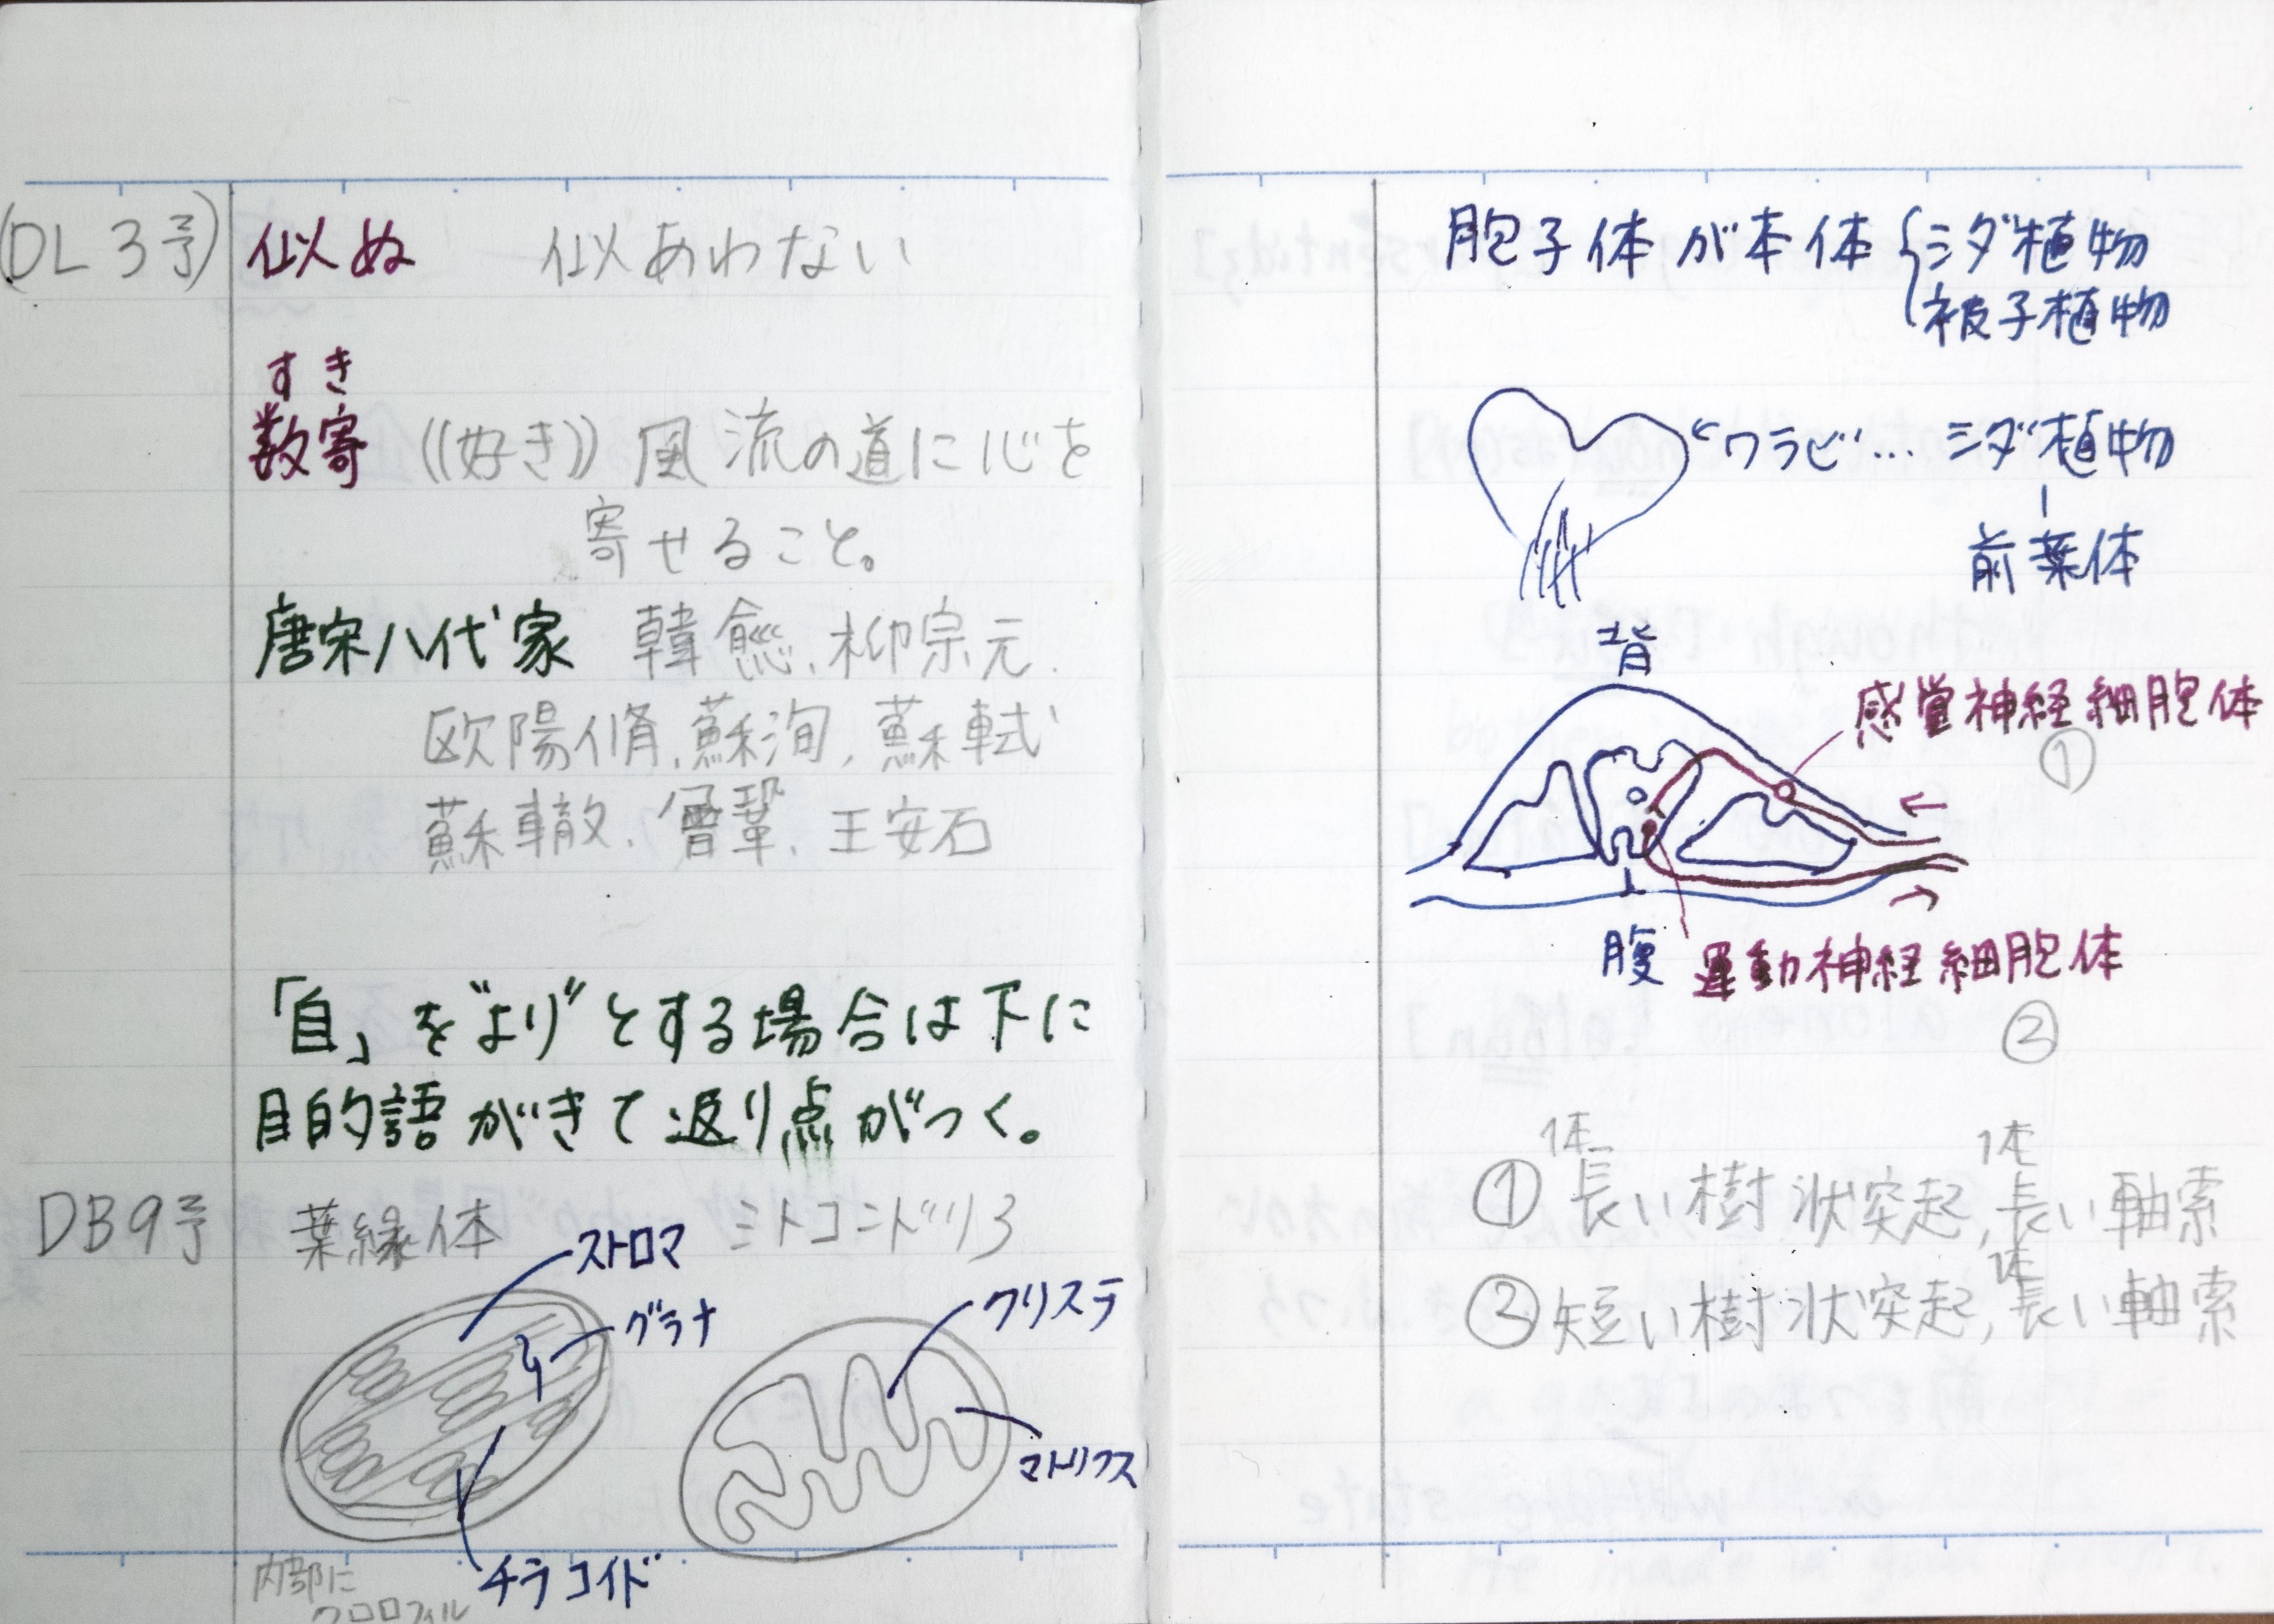 (DL3号) 似ぬ 似あわない
すき
数寄 ((好き)) 風流の道に心を
寄せること。
唐宋八代家 韓愈、柳宗元、
欧陽脩、蘇洵、蘇軾
蘇轍、曾鞏、王安石
「自」を"より"とする場合は下に
目的語がきて返り点がつく。
DB9号 葉緑体 ミトコンドリア
ストロマ
グラナ
クリステ
マトリクス
チラコイド
内部に
クロロフィル
胞子体が本体 { シダ植物
被子植物
←ワラビ… シダ植物
前葉体
背
感覚神経細胞体
①
腹 運動神経細胞体
②
1本 1本
① 長い樹状突起, 長い軸索
1本
② 短い樹状突起, 長い軸索